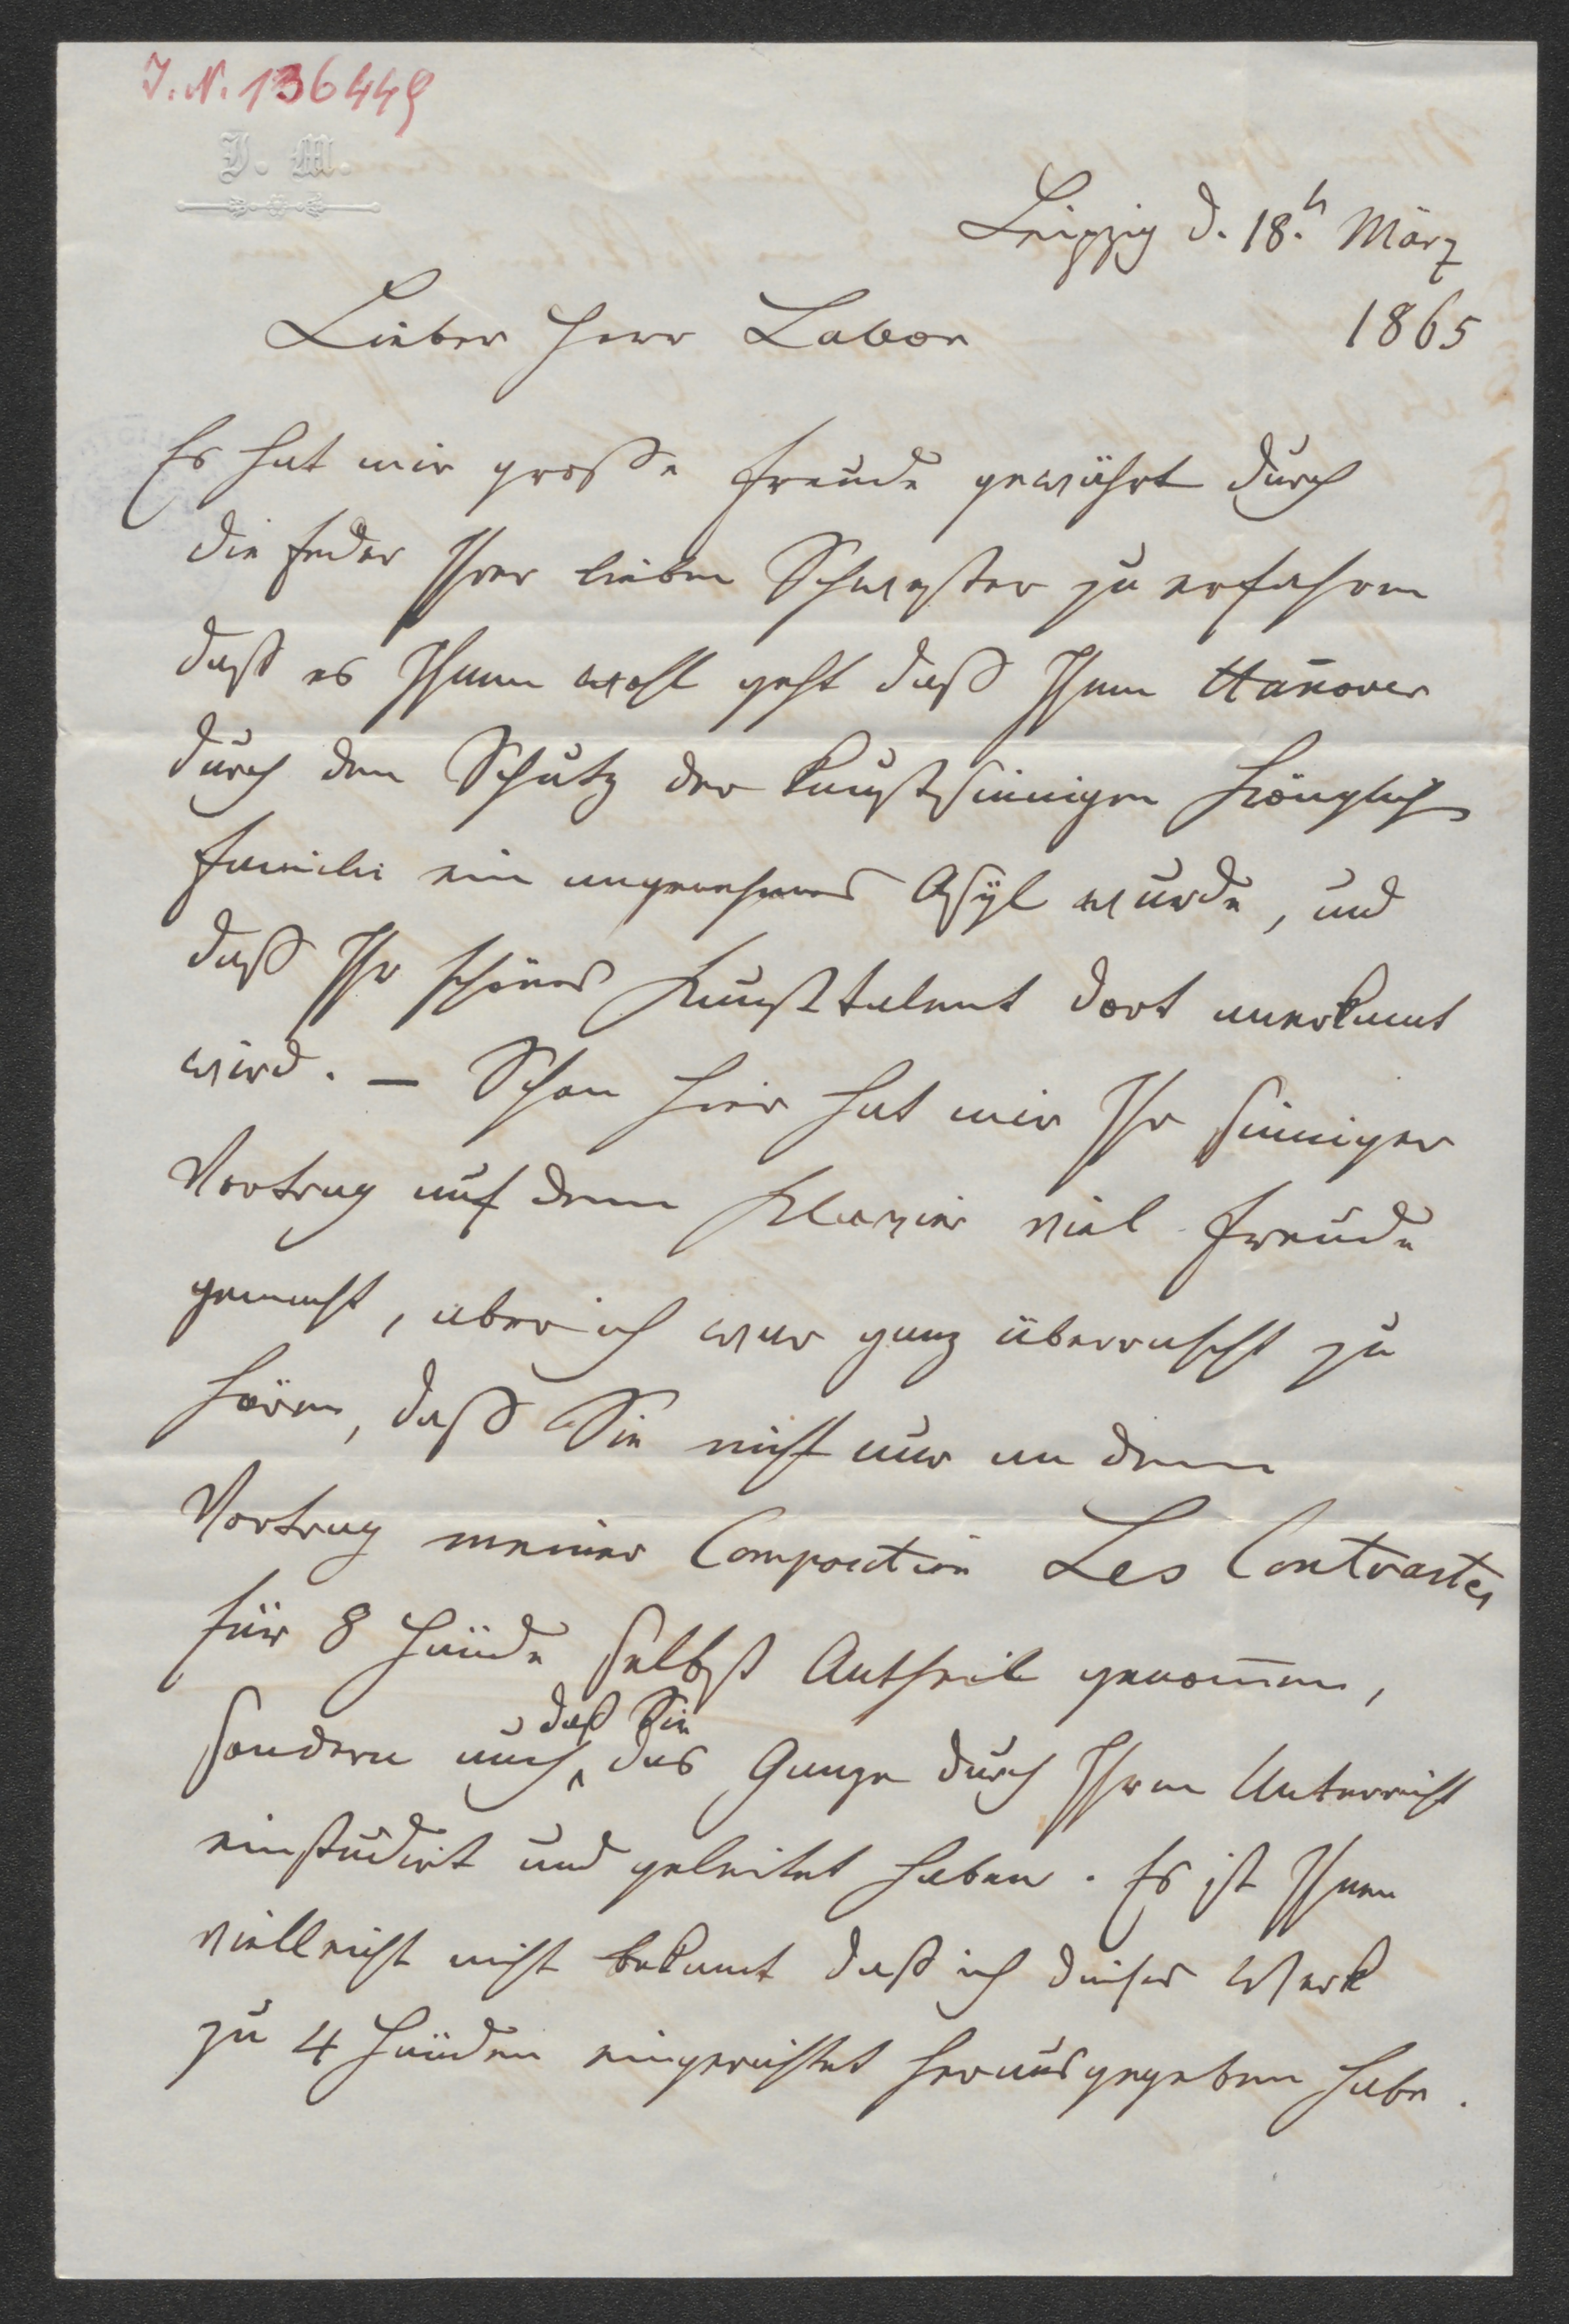 J. N. 136449
J. M.
Leipzig d. 18.t März
1865
Lieber Herr Labor
Es hat mir große Freude gewährt durch
die Feder Ihrer lieben Schwester zu erfahren
daß es Ihnen wohl geht daß Ihnen Hanover
durch den Schutz der kunstsinnigen Königlich
Familie ein angenehmes Asÿl wurde, und
daß Ihr schönes Kunsttalent dort anerkannt
wird. — Schon hier hat mir Ihr sinniger
Vortrag auf dem Klavier viel Freude
gemacht, aber ich war ganz überrascht zu
hören, daß Sie nicht nur an dem
Vortrag meiner Composition Les Contrastes
für 8 Hände selbst Antheil genomen,
daß Sie
sondern auch das Ganze durch Ihren Unterricht
einstudirt und geleitet haben. Es ist Ihnen
vielleicht nicht bekannt daß ich dieses Werk
zu 4 Händen eingerichtet herausgegeben habe.